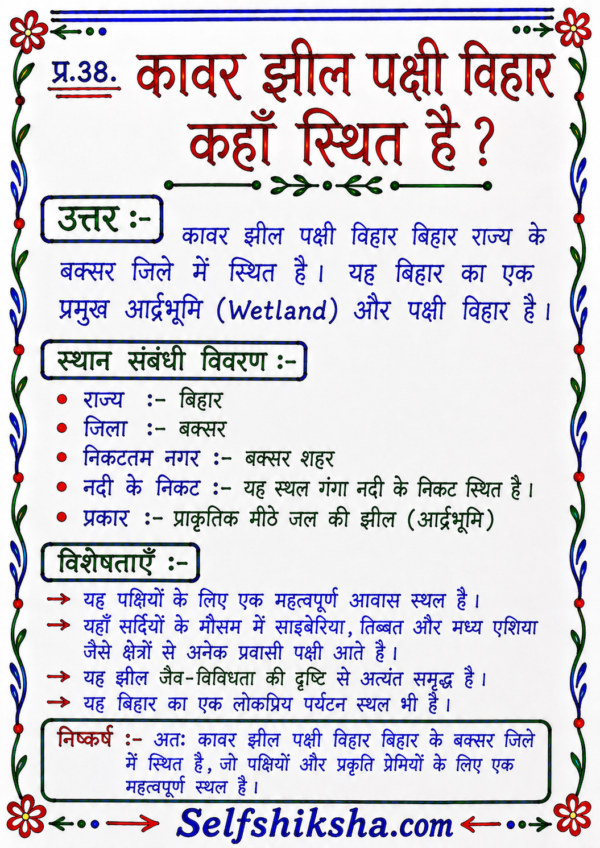 प्र.38. कावर झील पक्षी विहार
कहाँ स्थित है ?
उत्तर :-
कावर झील पक्षी विहार बिहार राज्य के
बक्सर जिले में स्थित है। यह बिहार का एक
प्रमुख आर्द्रभूमि (Wetland) और पक्षी विहार है।
स्थान संबंधी विवरण :-
• राज्य :- बिहार
• जिला :- बक्सर
• निकटतम नगर :- बक्सर शहर
• नदी के निकट :- यह स्थल गंगा नदी के निकट स्थित है।
• प्रकार :- प्राकृतिक मीठे जल की झील (आर्द्रभूमि)
विशेषताएँ :-
→ यह पक्षियों के लिए एक महत्वपूर्ण आवास स्थल है।
→ यहाँ सर्दियों के मौसम में साइबेरिया, तिब्बत और मध्य एशिया
जैसे क्षेत्रों से अनेक प्रवासी पक्षी आते है।
→ यह झील जैव-विविधता की दृष्टि से अत्यंत समृद्ध है।
→ यह बिहार का एक लोकप्रिय पर्यटन स्थल भी है।
निष्कर्ष :- अतः कावर झील पक्षी विहार बिहार के बक्सर जिले
में स्थित है, जो पक्षियों और प्रकृति प्रेमियों के लिए एक
महत्वपूर्ण स्थल है।
Selfshiksha.com